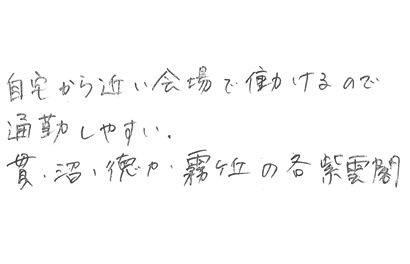 自宅から近い会場で働けるので
通勤しやすい。
貫、沼、徳力、霧ヶ丘の各紫雲閣